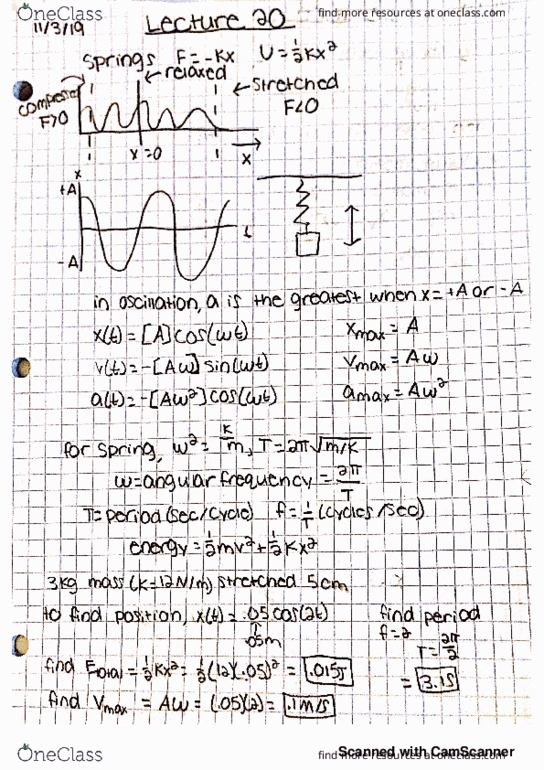 OneClass
find more resources at oneclass.com
11/3/19
Lecture 20
Springs F=-Kx U=½Kx²
relaxed
stretched
F<0
compressed
F>0
x=0
x
x
+A
-A
t
in oscillation, a is the greatest when x=+A or -A
x(t)=[A]cos(ωt) xmax=A
v(t)=-[Aω]sin(ωt) vmax=Aω
a(t)=-[Aω²]cos(ωt) amax=Aω²
for spring, ω²=K/m, T=2π√m/K
ω=angular frequency=2π/T
T=period(sec/cycle) f=1/T(cycles/sec)
energy=½mv²+½Kx²
3kg mass (K=12N/m) stretched 5cm
to find position, x(t)=.05cos(2t)
.05m
find period
f=2
T=2π/2
=3.1s
find Etotal=½Kx²=½(12)(.05)²=.015J
find Vmax=Aω=(.05)(2)=.1m/s
OneClass
find more resources at oneclass.com
Scanned with CamScanner